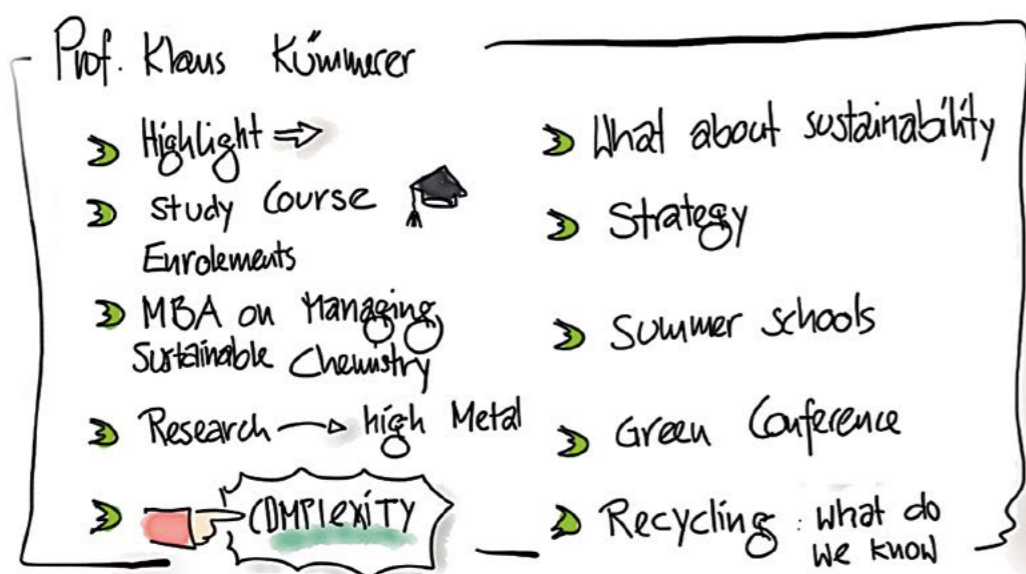 Prof. Klaus Kümmerer
Highlight ⇒
Study Course
Enrolements
MBA on Managing
Sustainable Chemistry
Research → high Metal
COMPLEXITY
What about sustainability
Strategy
Summer schools
Green Conference
Recycling : what do
we know